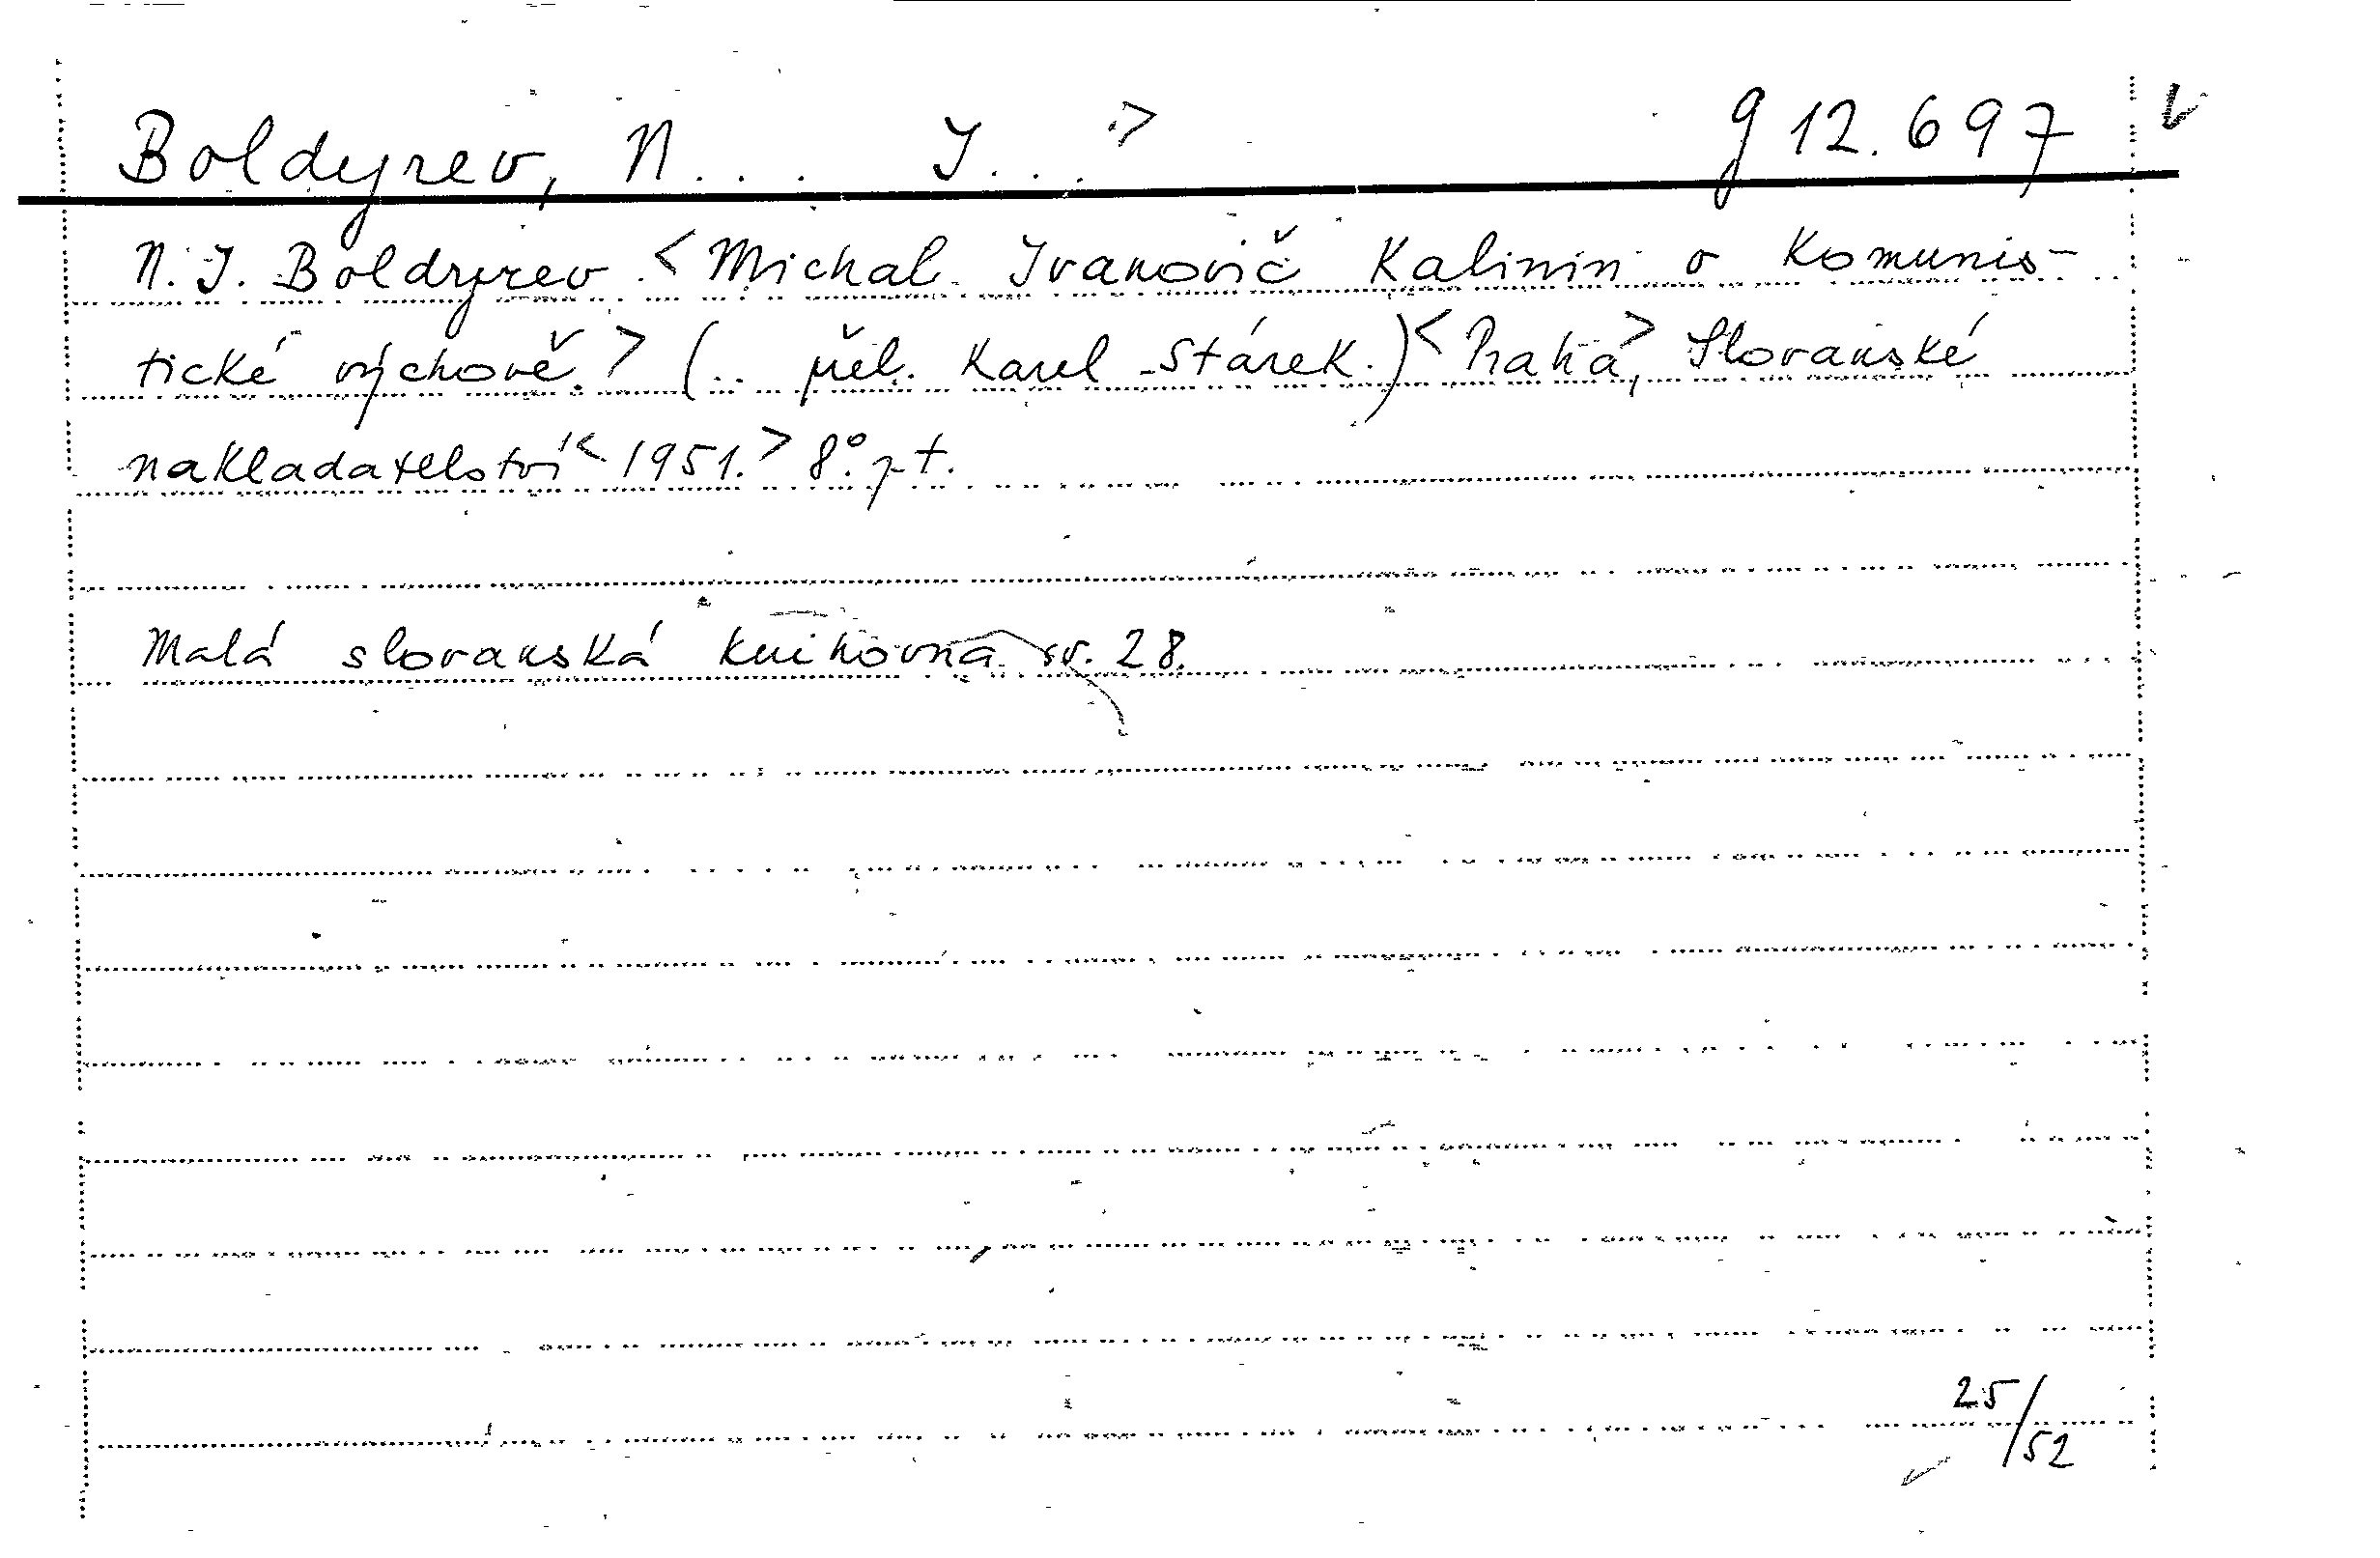 Boldyrev, N... J...> g 12.697
N. J. Boldyrev <Michal Ivanovič Kalinin o komunis-
tické výchově.> (.. přel. Karel Stárek.) <Praha>, Slovanské
nakladatelství <1951.> 8°. p t.
Malá slovanská knihovna sv. 28.
25/52